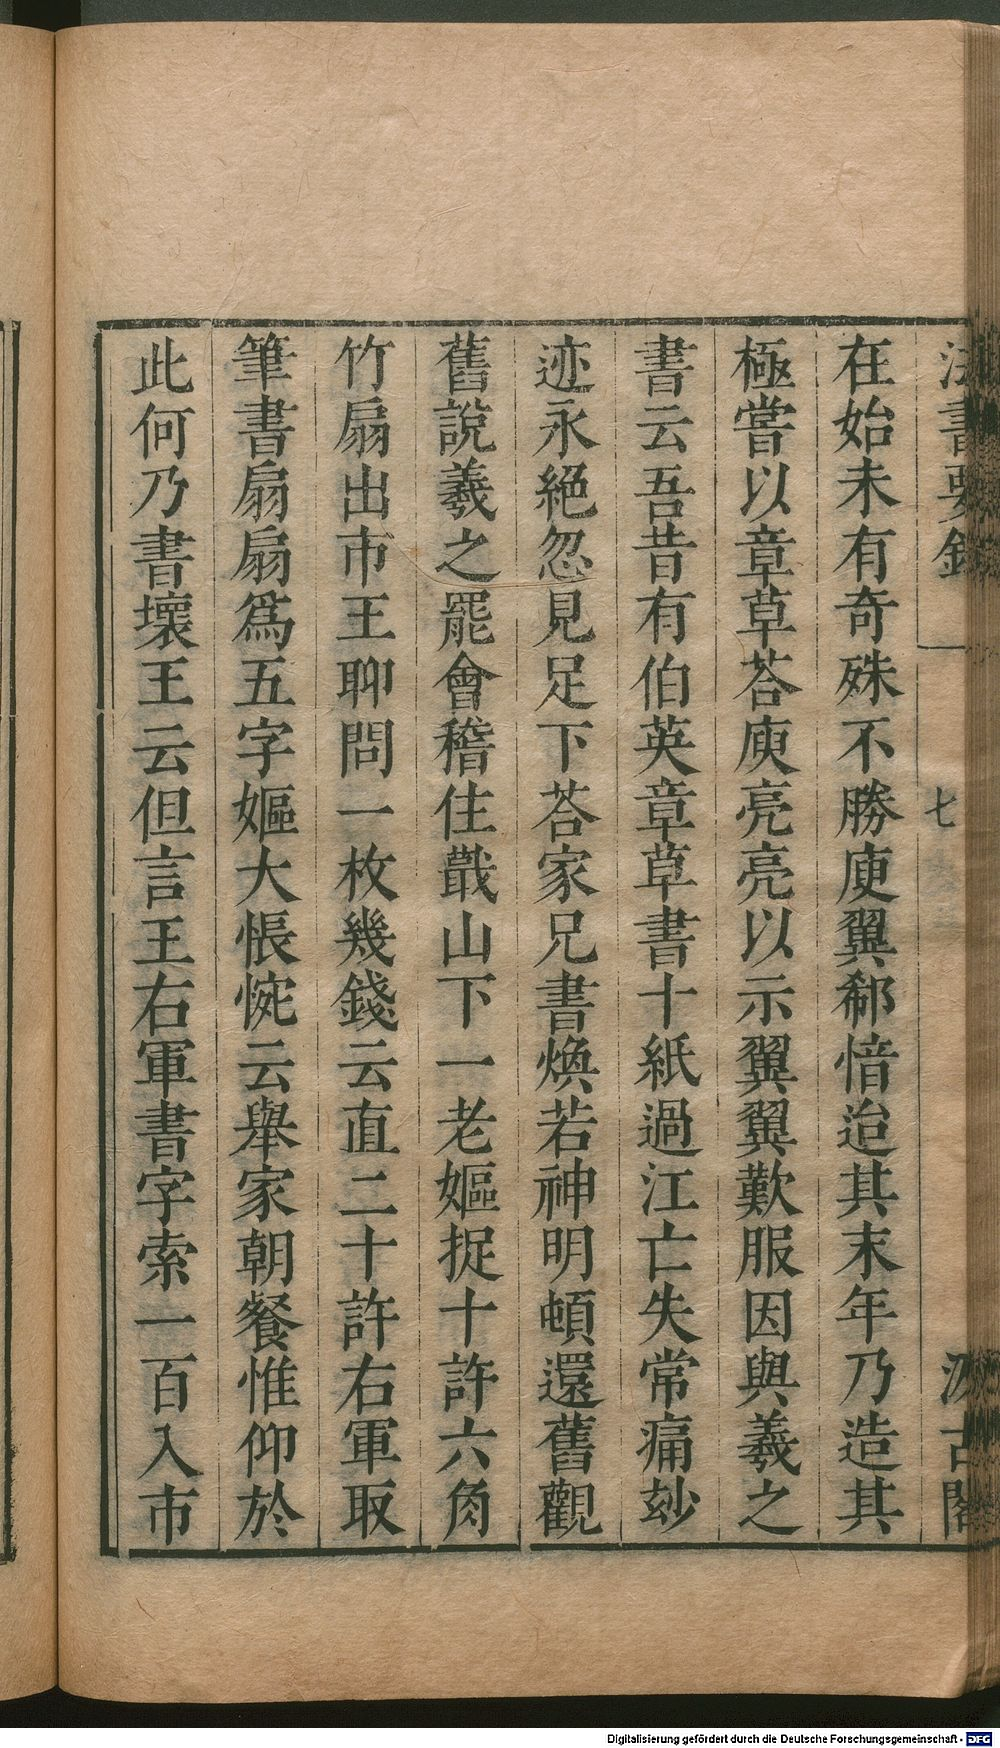 法書要錄 一 七 汲古閣
在始未有奇殊不勝庾翼郗愔迨其末年乃造其
極嘗以章草荅庾亮亮以示翼翼歎服因與羲之
書云吾昔有伯英章草書十紙過江亡失常痛玅
迹永絕忽見足下荅家兄書煥若神明頓還舊觀
舊說羲之罷會稽住蕺山下一老嫗捉十許六角
竹扇出市王聊問一枚幾錢云直二十許右軍取
筆書扇扇爲五字嫗大悵惋云舉家朝餐惟仰於
此何乃書壞王云但言王右軍書字索一百入市
Digitalisierung gefördert durch die Deutsche Forschungsgemeinschaft - DFG